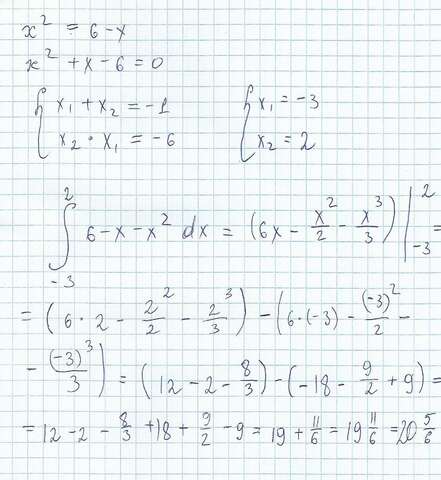 x² = 6 - x
x² + x - 6 = 0
{ x₁ + x₂ = -1 { x₁ = -3
x₂ · x₁ = -6 x₂ = 2
∫₋₃² 6 - x - x² dx = (6x - x²/2 - x³/3) |₋₃² =
= (6 · 2 - 2²/2 - 2³/3) - (6 · (-3) - (-3)²/2 -
- (-3)³/3) = (12 - 2 - 8/3) - (-18 - 9/2 + 9) =
= 12 - 2 - 8/3 + 18 + 9/2 - 9 = 19 + 11/6 = 19 11/6 = 20 5/6